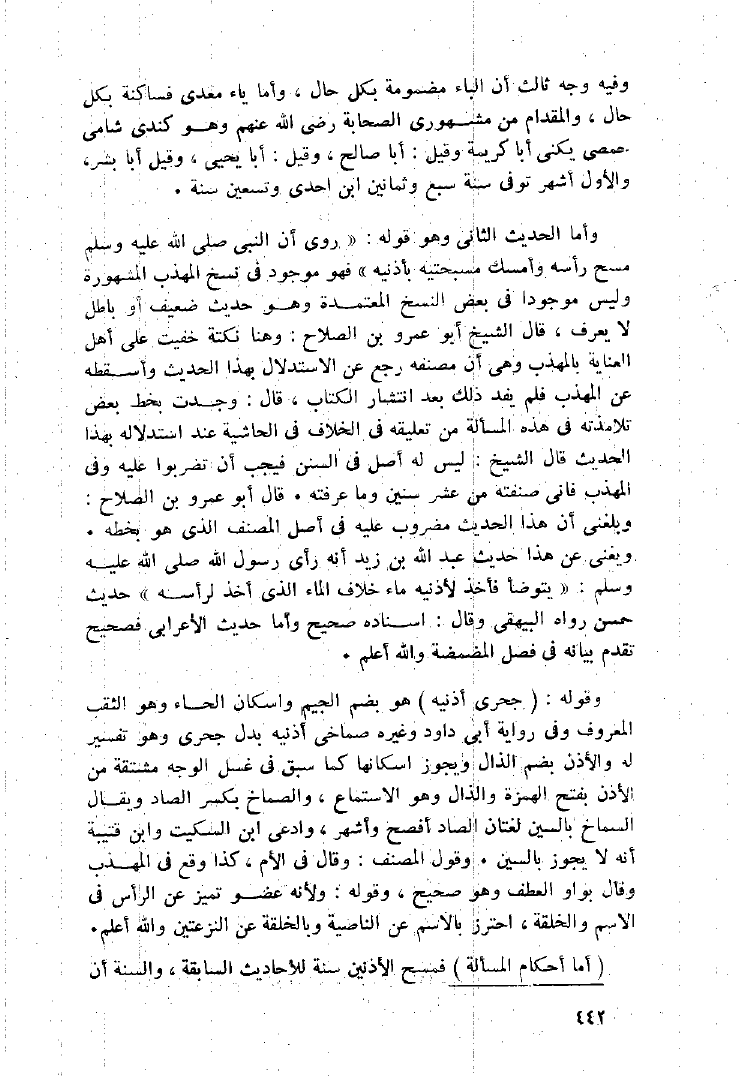 وفيه وجه ثالث أن الباء مضمومة بكل حال ، وأما ياء معدى فساكنة بكل
حال ، والمقدام من مشهورى الصحابة رضى الله عنهم وهو كندى شامى
حمصى يكنى أبا كريمة وقيل : أبا صالح ، وقيل : أبا يحيى ، وقيل أبا بشر،
والأول أشهر توفى سنة سبع وثمانين ابن احدى وتسعين سنة .
وأما الحديث الثانى وهو قوله : « روى أن النبى صلى الله عليه وسلم
مسح رأسه وأمسك مسبحتيه بأذنيه » فهو موجود فى نسخ المهذب المشهورة
وليس موجودا فى بعض النسخ المعتمدة وهو حديث ضعيف أو باطل
لا يعرف ، قال الشيخ أبو عمرو بن الصلاح : وهنا نكتة خفيت على أهل
العناية بالمهذب وهى أن مصنفه رجع عن الاستدلال بهذا الحديث وأسقطه
عن المهذب فلم يفد ذلك بعد انتشار الكتاب ، قال : وجدت بخط بعض
تلامذته فى هذه المسألة من تعليقه فى الخلاف فى الحاشية عند استدلاله بهذا
الحديث قال الشيخ : ليس له أصل فى السنن فيجب أن تضربوا عليه وفى
المهذب فانى صنفته من عشر سنين وما عرفته . قال أبو عمرو بن الصلاح :
وبلغنى أن هذا الحديث مضروب عليه فى أصل المصنف الذى هو بخطه .
ويغنى عن هذا حديث عبد الله بن زيد أنه رأى رسول الله صلى الله عليه
وسلم : « يتوضأ فأخذ لأذنيه ماء خلاف الماء الذى أخذ لرأسه » حديث
حسن رواه البيهقى وقال : اسناده صحيح وأما حديث الأعرابى فصحيح
تقدم بيانه فى فصل المضمضة والله أعلم .
وقوله : ( جحرى أذنيه ) هو بضم الجيم واسكان الحاء وهو الثقب
المعروف وفى رواية أبى داود وغيره صماخى أذنيه بدل جحرى وهو تفسير
له والأذن بضم الذال ويجوز اسكانها كما سبق فى غسل الوجه مشتقة من
الأذن بفتح الهمزة والذال وهو الاستماع ، والصماخ بكسر الصاد ويقال
السماخ بالسين لغتان الصاد أفصح وأشهر ، وادعى ابن السكيت وابن قتيبة
أنه لا يجوز بالسين . وقول المصنف : وقال فى الأم ، كذا وقع فى المهذب
وقال بواو العطف وهو صحيح ، وقوله : ولأنه عضو تميز عن الرأس فى
الاسم والخلقة ، احترز بالاسم عن الناصية وبالخلقة عن النزعتين والله أعلم.
( أما أحكام المسألة ) فمسح الأذنين سنة للأحاديث السابقة ، والسنة أن
٤٤٢